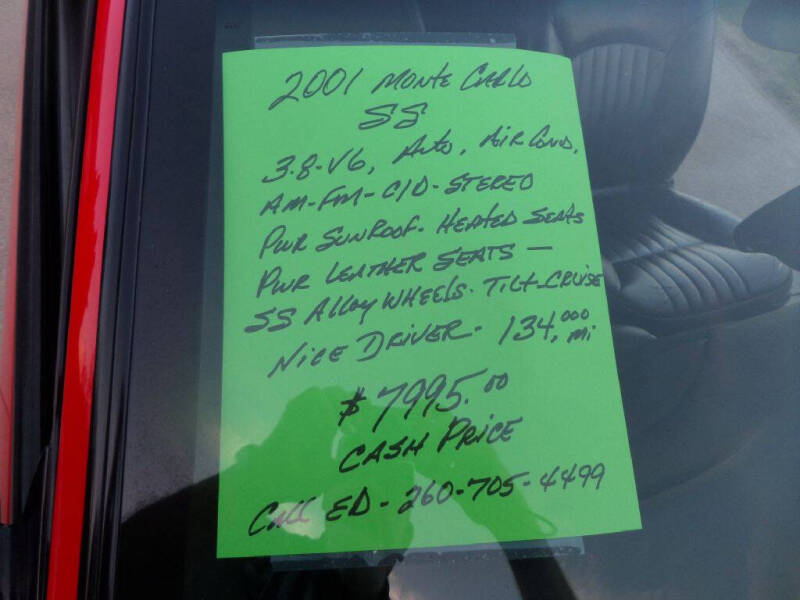 2001 MONTE CARLO
SS
3.8-V6, Auto, AIR COND,
AM-FM-C/D-STEREO
PWR SUNROOF. HEATED SEATS
PWR LEATHER SEATS —
SS Alloy WHEELS. TILT-CRUISE
NICE DRIVER - 134,000 mi
$7995.00
CASH PRICE
Call ED - 260-705-4499